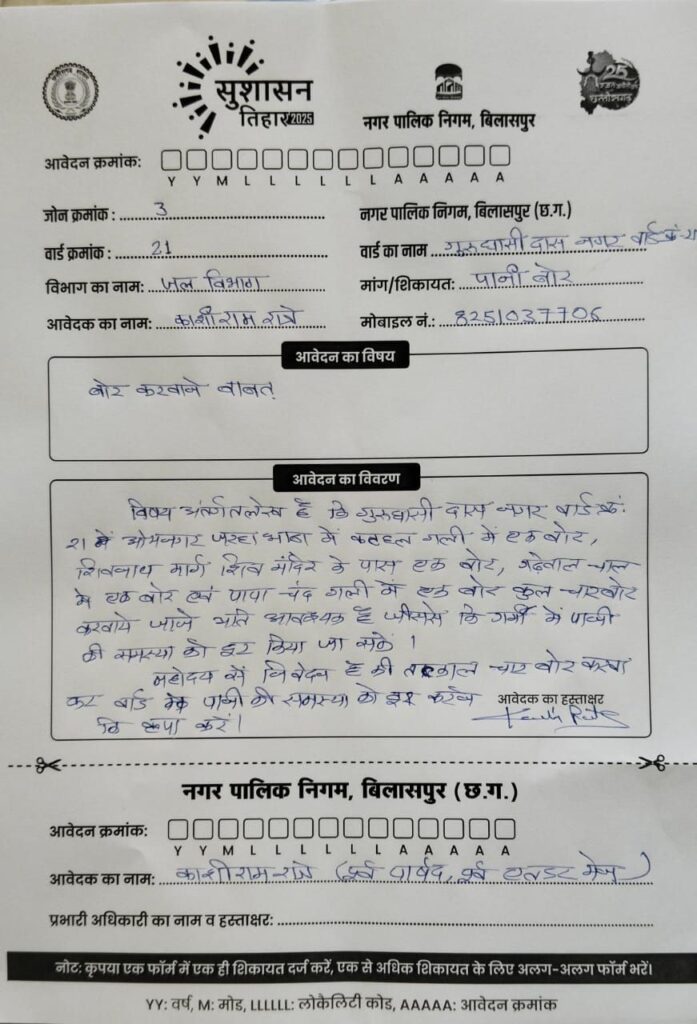 सुशासन
तिहार 2025
नगर पालिक निगम, बिलासपुर
25
छत्तीसगढ़
आवेदन क्रमांक:
Y Y M L L L L L L A A A A A
जोन क्रमांक : 3 नगर पालिक निगम, बिलासपुर (छ.ग.)
वार्ड क्रमांक : 21 वार्ड का नाम गुरुघासीदास नगर वार्ड क्रं २१
विभाग का नाम: जल विभाग मांग/शिकायत: पानी बोर
आवेदक का नाम: काशीराम रात्रे मोबाइल नं.: 8251037706
आवेदन का विषय
बोर करवाने बाबत्
आवेदन का विवरण
विषय अंर्तगत लेख है कि गुरुघासी दास नगर वार्ड क्रं:
21 में ओमनगर जरहाभाठा में कटहल गली में एक बोर,
शिवनाथ मार्ग शिव मंदिर के पास एक बोर, गढ़ेवाल चाल
में एक बोर एवं पापा चंद गली में एक बोर कुल चार बोर
करवाये जाने अति आवश्यक है जीससे कि गर्मी में पानी
की समस्या को दूर किया जा सके ।
महोदय से निवेदन है की तत्काल चार बोर करवा
कर वार्ड पानी की समस्या को दूर करने
कि कृपा करें।
आवेदक का हस्ताक्षर
नगर पालिक निगम, बिलासपुर (छ.ग.)
आवेदन क्रमांक:
Y Y M L L L L L L A A A A A
आवेदक का नाम: काशीराम रात्रे (पूर्व पार्षद, पूर्व एल्डर मेन)
प्रभारी अधिकारी का नाम व हस्ताक्षर:
नोट: कृपया एक फॉर्म में एक ही शिकायत दर्ज करें, एक से अधिक शिकायत के लिए अलग-अलग फॉर्म भरें।
YY: वर्ष, M: मोड, LLLLLL: लोकैलिटी कोड, AAAAA: आवेदन क्रमांक